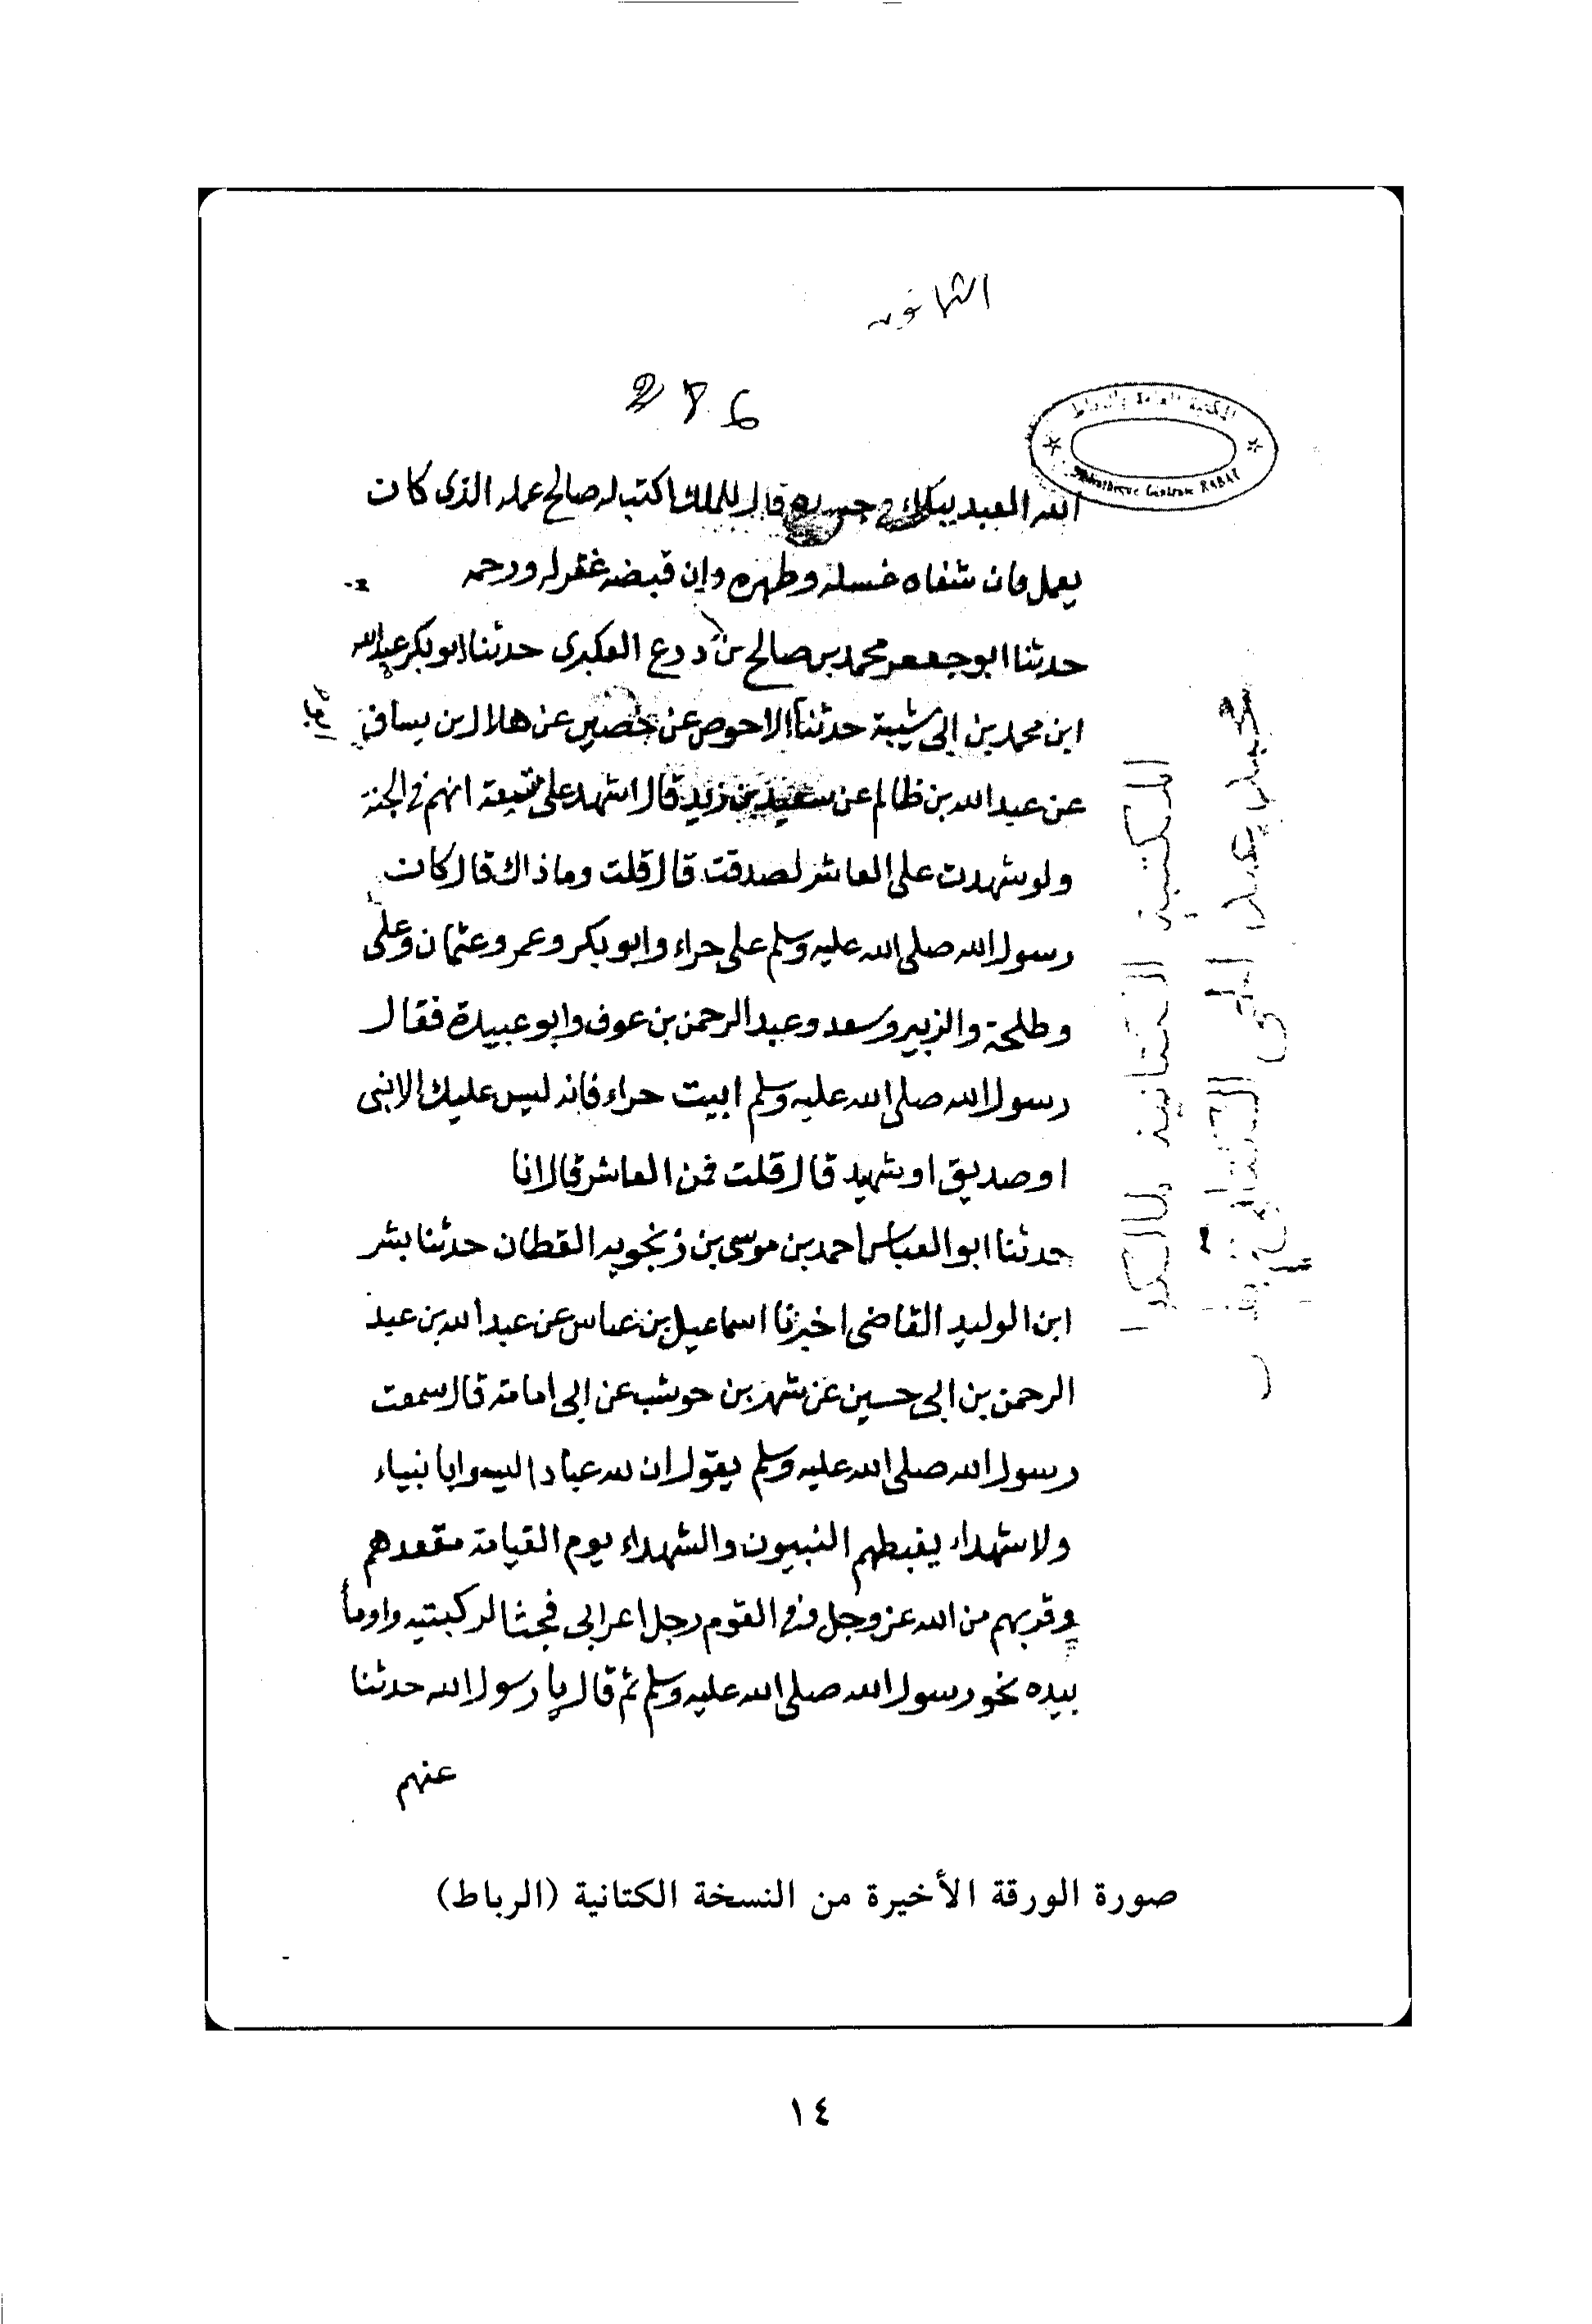 286
المكتبة العامة بالرباط
Bibliothèque Générale RABAT
الله العبد ببلاء في جسده قال للملك اكتب له صالح عمله الذى كان
يعمل فان شفاه غسله وطهره وان قبضه غفر له ورحمه
حدثنا ابو جعفر محمد بن صالح بن ذريح العكبرى حدثنا ابو بكر عبد الله
ابن محمد بن ابى شيبة حدثنا الاحوص عن حصين عن هلال بن يساف
عن عبد الله بن ظالم عن سعيد بن زيد قال اشهد على تسعة انهم فى الجنة
ولو شهدت على العاشر لصدقت قال قلت وما ذاك قال كان
رسول الله صلى الله عليه وسلم على حراء وابو بكر وعمر وعثمان وعلى
وطلحة والزبير وسعد وعبد الرحمن بن عوف وابو عبيدة فقال
رسول الله صلى الله عليه وسلم اثبت حراء فانه ليس عليك الا نبى
او صديق او شهيد قال قلت فمن العاشر قال انا
حدثنا ابو العباس احمد بن موسى بن زنجويه القطان حدثنا بشر
ابن الوليد القاضى اخبرنا اسماعيل بن عياش عن عبد الله بن عبد
الرحمن بن ابى حسين عن شهر بن حوشب عن ابى امامة قال سمعت
رسول الله صلى الله عليه وسلم يقول ان لله عبادا ليسوا بانبياء
ولا شهداء يغبطهم النبيون والشهداء يوم القيامة مقعدهم
وقربهم من الله عز وجل وفى القوم رجل اعرابى فجثا لركبتيه واومأ
بيده نحو رسول الله صلى الله عليه وسلم ثم قال يا رسول الله حدثنا
عنهم
المكتبة الكتانية
عبد الحى الكتانى
صورة الورقة الأخيرة من النسخة الكتانية (الرباط)
١٤